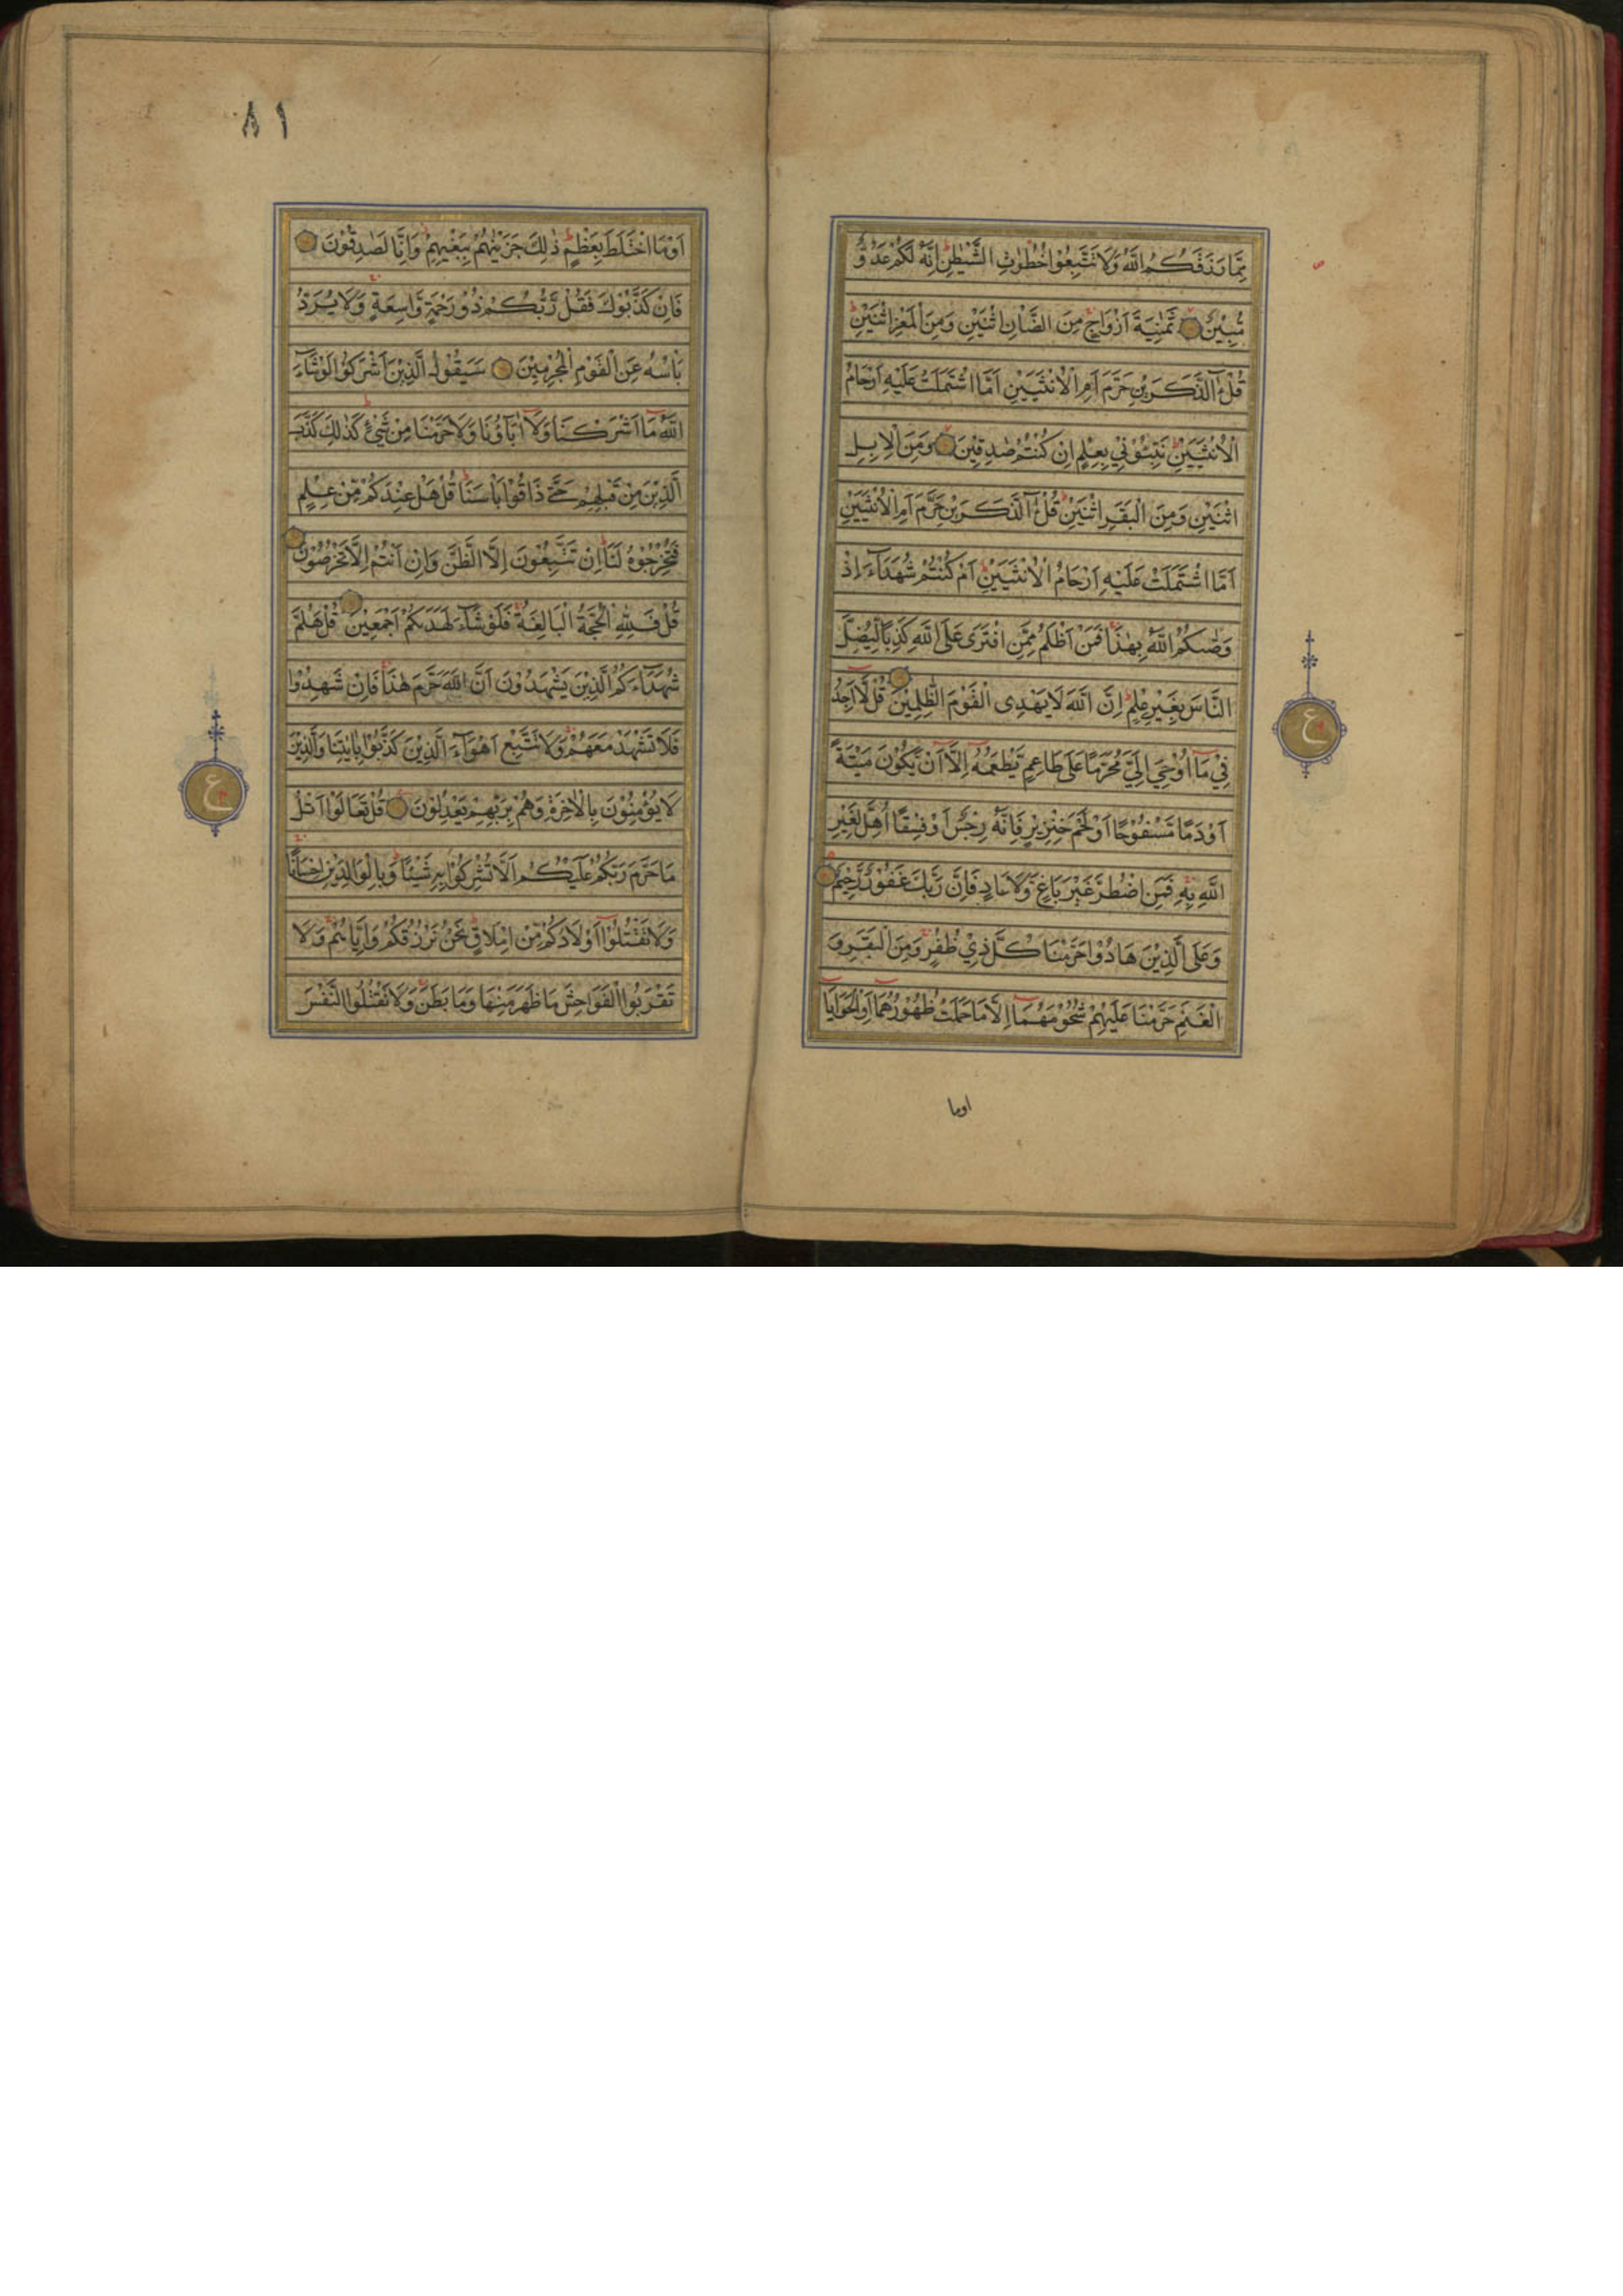 مِمَّا رَزَقَكُمُ اللّٰهُ وَلَا تَتَّبِعُوْا خُطُوٰتِ الشَّيْطٰنِ اِنَّهٗ لَكُمْ عَدُوٌّ
مُّبِيْنٌ ثَمٰنِيَةَ اَزْوَاجٍ مِنَ الضَّاْنِ اثْنَيْنِ وَمِنَ الْمَعْزِ اثْنَيْنِ
قُلْ ءٰٓالذَّكَرَيْنِ حَرَّمَ اَمِ الْاُنْثَيَيْنِ اَمَّا اشْتَمَلَتْ عَلَيْهِ اَرْحَامُ
الْاُنْثَيَيْنِ نَبِّئُوْنِيْ بِعِلْمٍ اِنْ كُنْتُمْ صٰدِقِيْنَ وَمِنَ الْاِبِلِ
اثْنَيْنِ وَمِنَ الْبَقَرِ اثْنَيْنِ قُلْ ءٰٓالذَّكَرَيْنِ حَرَّمَ اَمِ الْاُنْثَيَيْنِ
اَمَّا اشْتَمَلَتْ عَلَيْهِ اَرْحَامُ الْاُنْثَيَيْنِ اَمْ كُنْتُمْ شُهَدَآءَ اِذْ
وَصّٰىكُمُ اللّٰهُ بِهٰذَا فَمَنْ اَظْلَمُ مِمَّنِ افْتَرٰى عَلَى اللّٰهِ كَذِبًا لِّيُضِلَّ
النَّاسَ بِغَيْرِ عِلْمٍ اِنَّ اللّٰهَ لَا يَهْدِى الْقَوْمَ الظّٰلِمِيْنَ قُلْ لَّآ اَجِدُ
فِيْ مَآ اُوْحِيَ اِلَيَّ مُحَرَّمًا عَلٰى طَاعِمٍ يَّطْعَمُهٗٓ اِلَّآ اَنْ يَّكُوْنَ مَيْتَةً
اَوْ دَمًا مَّسْفُوْحًا اَوْ لَحْمَ خِنْزِيْرٍ فَاِنَّهٗ رِجْسٌ اَوْ فِسْقًا اُهِلَّ لِغَيْرِ
اللّٰهِ بِهٖ فَمَنِ اضْطُرَّ غَيْرَ بَاغٍ وَّلَا عَادٍ فَاِنَّ رَبَّكَ غَفُوْرٌ رَّحِيْمٌ
وَعَلَى الَّذِيْنَ هَادُوْا حَرَّمْنَا كُلَّ ذِيْ ظُفُرٍ وَمِنَ الْبَقَرِ وَ
الْغَنَمِ حَرَّمْنَا عَلَيْهِمْ شُحُوْمَهُمَآ اِلَّا مَا حَمَلَتْ ظُهُوْرُهُمَآ اَوِ الْحَوَايَآ
اوما
ع
٨١
اَوْ مَا اخْتَلَطَ بِعَظْمٍ ذٰلِكَ جَزَيْنٰهُمْ بِبَغْيِهِمْ وَاِنَّا لَصٰدِقُوْنَ
فَاِنْ كَذَّبُوْكَ فَقُلْ رَّبُّكُمْ ذُوْ رَحْمَةٍ وَّاسِعَةٍ وَلَا يُرَدُّ
بَاْسُهٗ عَنِ الْقَوْمِ الْمُجْرِمِيْنَ سَيَقُوْلُ الَّذِيْنَ اَشْرَكُوْا لَوْ شَآءَ
اللّٰهُ مَآ اَشْرَكْنَا وَلَآ اٰبَآؤُنَا وَلَا حَرَّمْنَا مِنْ شَيْءٍ كَذٰلِكَ كَذَّبَ
الَّذِيْنَ مِنْ قَبْلِهِمْ حَتّٰى ذَاقُوْا بَاْسَنَا قُلْ هَلْ عِنْدَكُمْ مِّنْ عِلْمٍ
فَتُخْرِجُوْهُ لَنَا اِنْ تَتَّبِعُوْنَ اِلَّا الظَّنَّ وَاِنْ اَنْتُمْ اِلَّا تَخْرُصُوْنَ
قُلْ فَلِلّٰهِ الْحُجَّةُ الْبَالِغَةُ فَلَوْ شَآءَ لَهَدٰىكُمْ اَجْمَعِيْنَ قُلْ هَلُمَّ
شُهَدَآءَكُمُ الَّذِيْنَ يَشْهَدُوْنَ اَنَّ اللّٰهَ حَرَّمَ هٰذَا فَاِنْ شَهِدُوْا
فَلَا تَشْهَدْ مَعَهُمْ وَلَا تَتَّبِعْ اَهْوَآءَ الَّذِيْنَ كَذَّبُوْا بِاٰيٰتِنَا وَالَّذِيْنَ
لَا يُؤْمِنُوْنَ بِالْاٰخِرَةِ وَهُمْ بِرَبِّهِمْ يَعْدِلُوْنَ قُلْ تَعَالَوْا اَتْلُ
مَا حَرَّمَ رَبُّكُمْ عَلَيْكُمْ اَلَّا تُشْرِكُوْا بِهٖ شَيْئًا وَّبِالْوَالِدَيْنِ اِحْسَانًا
وَلَا تَقْتُلُوْٓا اَوْلَادَكُمْ مِّنْ اِمْلَاقٍ نَحْنُ نَرْزُقُكُمْ وَاِيَّاهُمْ وَلَا
تَقْرَبُوا الْفَوَاحِشَ مَا ظَهَرَ مِنْهَا وَمَا بَطَنَ وَلَا تَقْتُلُوا النَّفْسَ
ع